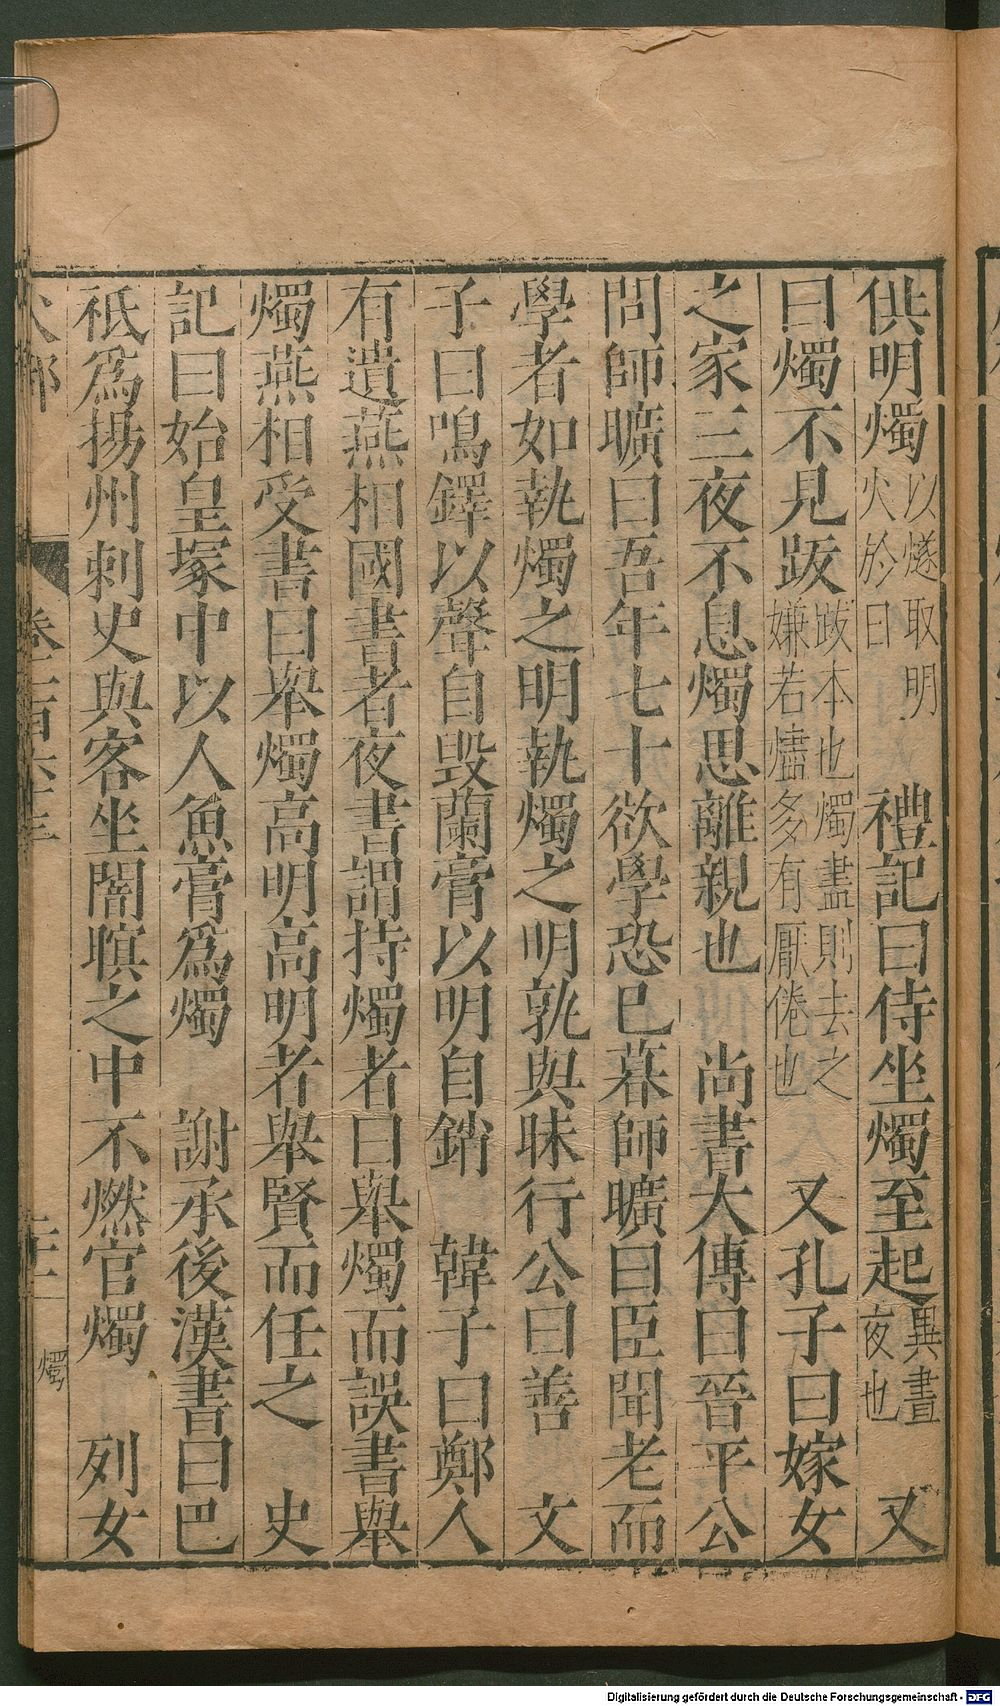 供明燭以燧取明火於日　禮記曰侍坐燭至起異晝夜也　又
曰燭不見跋跋本也燭盡則去之嫌若燼多有厭倦也　又孔子曰嫁女
之家三夜不息燭思離親也　尚書大傳曰晉平公
問師曠曰吾年七十欲學恐已暮師曠曰臣聞老而
學者如執燭之明執燭之明孰與昧行公曰善　文
子曰鳴鐸以聲自毀蘭膏以明自銷　韓子曰鄭人
有遺燕相國書者夜書謂持燭者曰舉燭而誤書舉
燭燕相受書曰舉燭高明高明者舉賢而任之　史
記曰始皇塚中以人魚膏爲燭　謝承後漢書曰巴
祗爲揚州刺史與客坐闇暝之中不燃官燭　列女
火部　卷三百六十三　二十二　燭
Digitalisierung gefördert durch die Deutsche Forschungsgemeinschaft - DFG